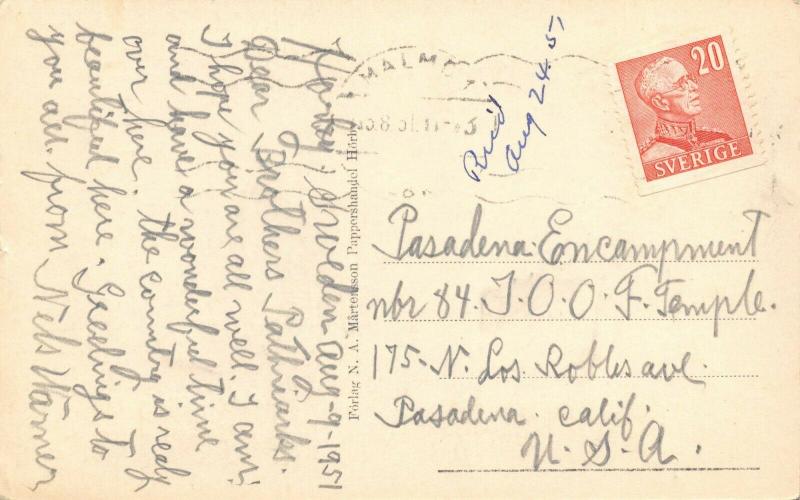 Hörby, Sweden Aug-9-1951
Dear Brothers Pathriarks.
I hope you are all well. I am
and have a wonderful time
over here. the country is realy
beautiful here. Greedings to
you all from Nels Warner
Förlag N. A. Mårtensson Pappershandel Hörby
MALMÖ
Rec'd
Aug 24 51
20
SVERIGE
Pasadena Encampment
nbr 84. I.O.O.F. Temple.
175-N. Los Robles ave.
Pasadena. calif.
U.S.A.